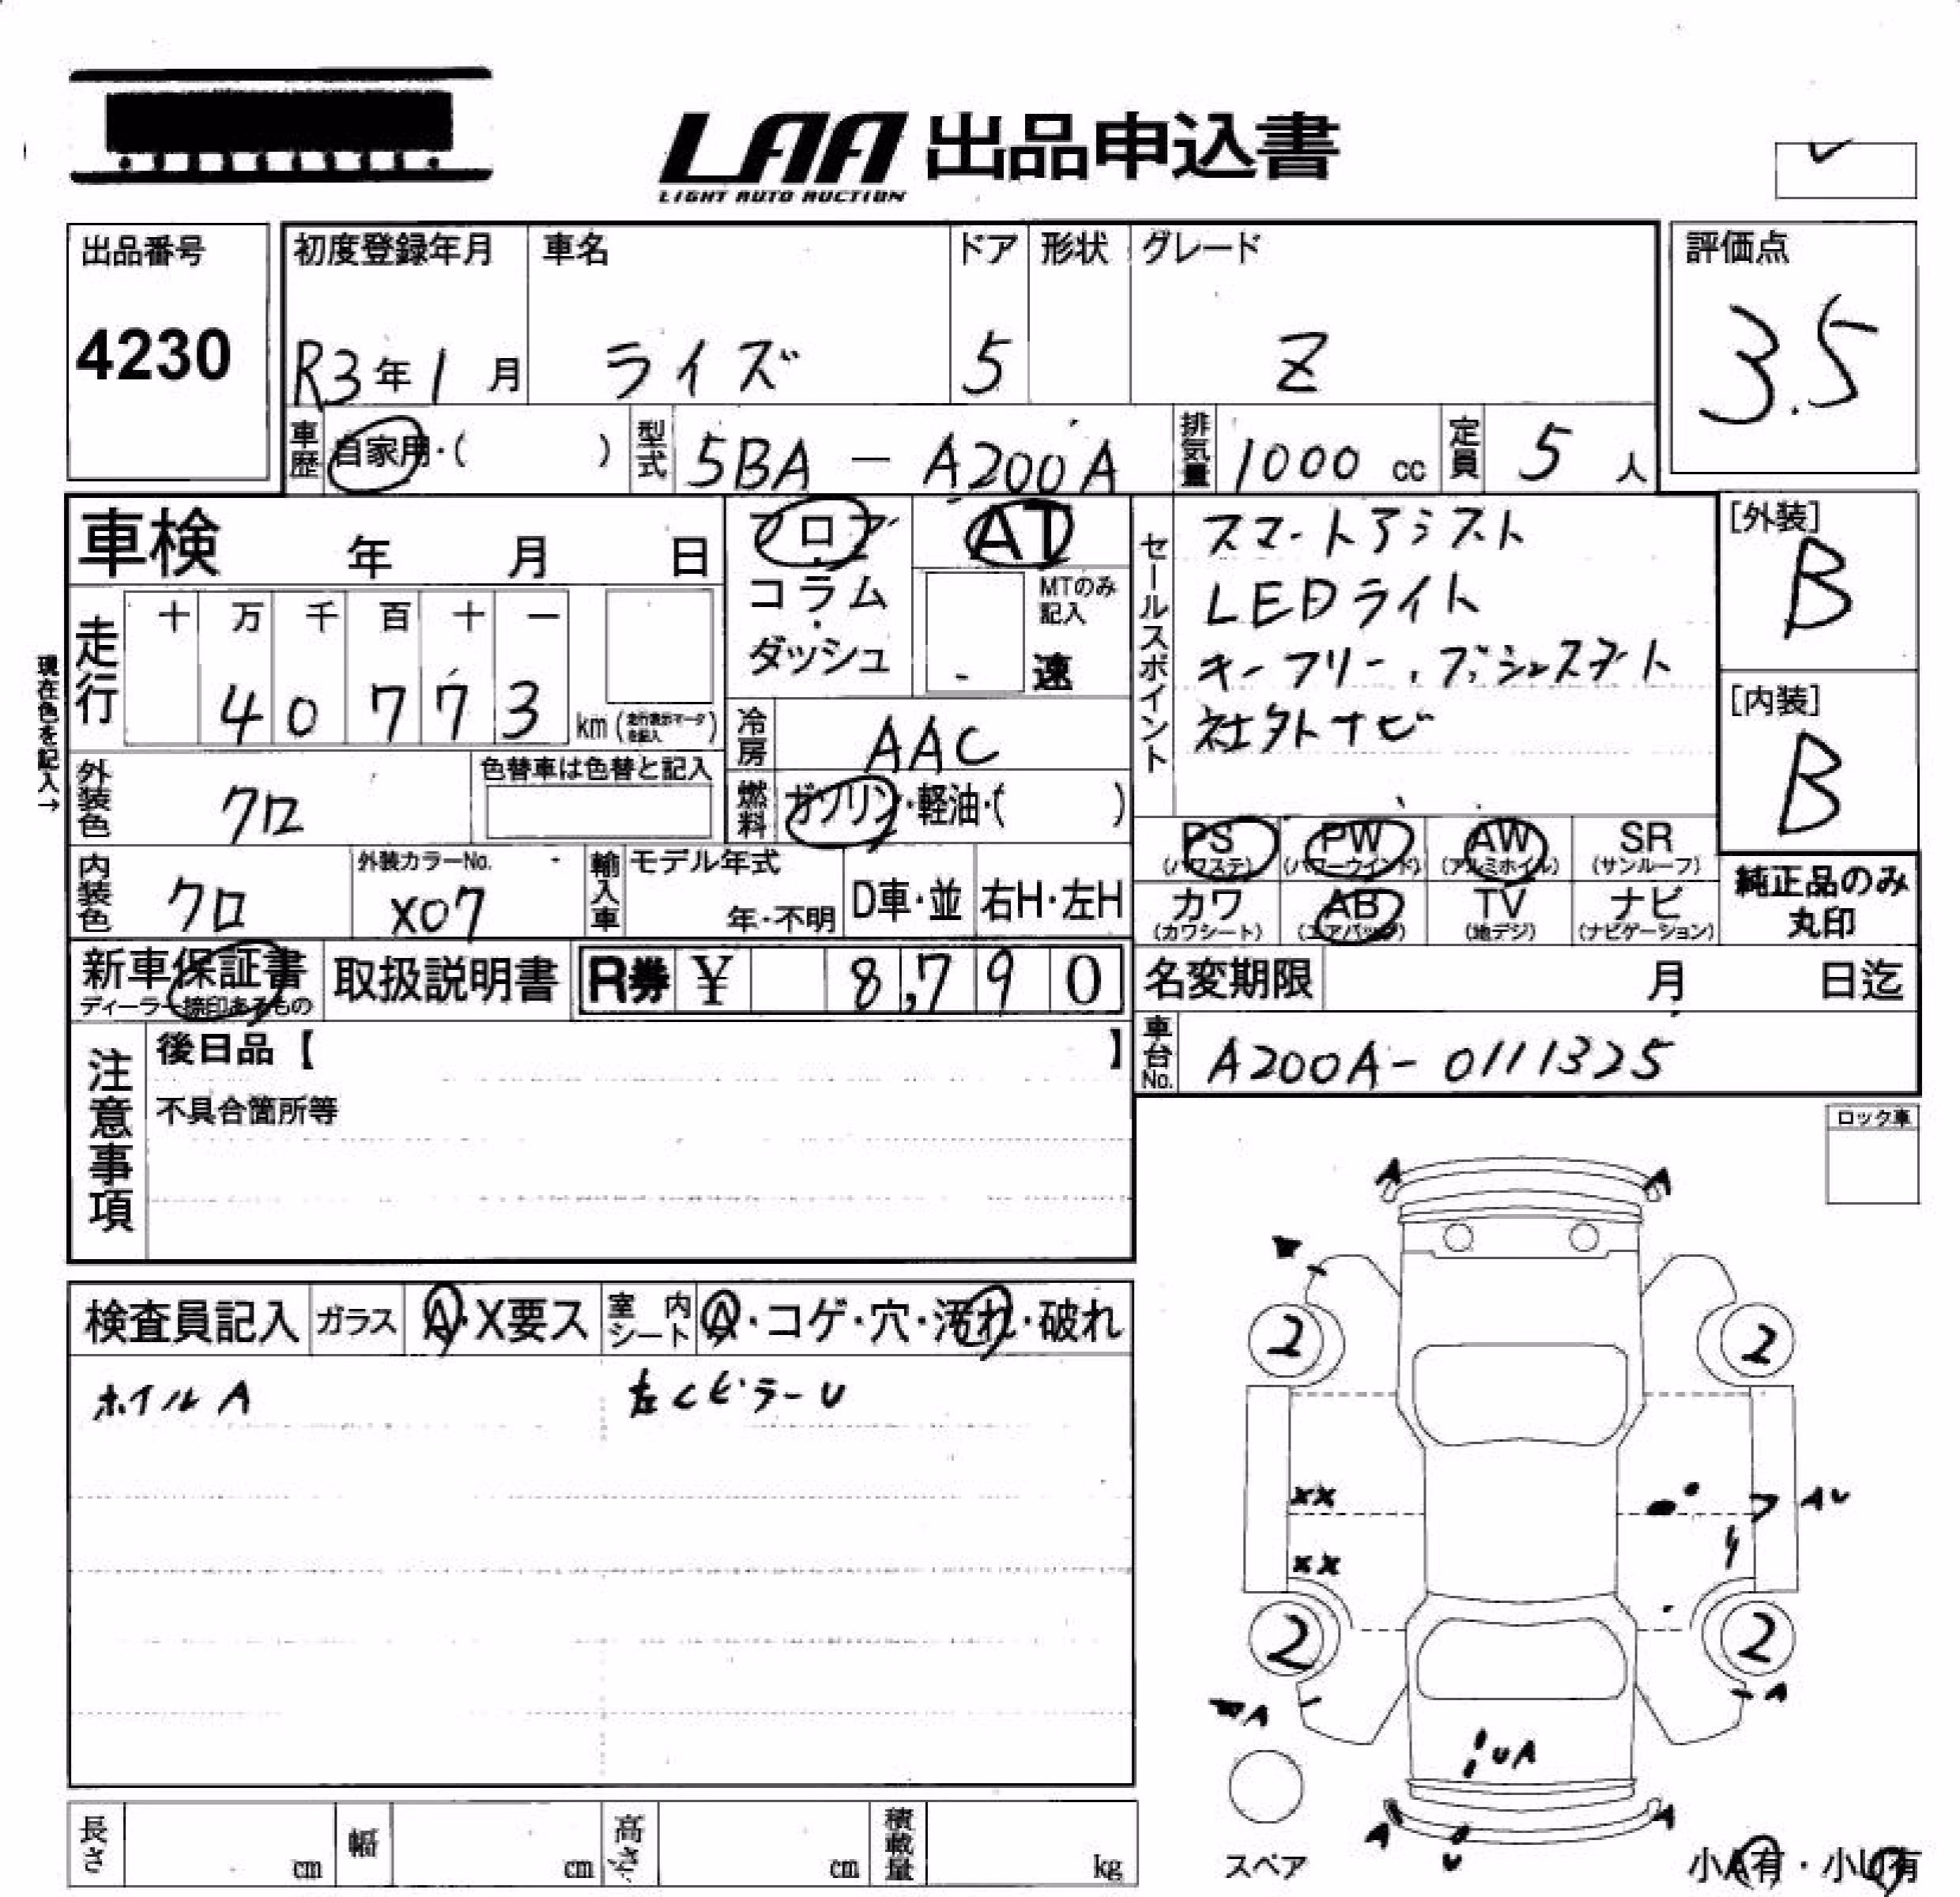 LAA 出品申込書
LIGHT AUTO AUCTION
出品番号
4230
初度登録年月 車名 ドア 形状 グレード
R3年1月 ライズ 5 Z
評価点
3.5
車歴 自家用・( ) 型式 5BA - A200A 排気量 1000 cc 定員 5 人
車検 年 月 日
フロア
コラム
ダッシュ
AT
MTのみ記入
速
セールスポイント
スマートアシスト
LEDライト
キーフリー、プッシュスタート
社外ナビ
[外装]
B
[内装]
B
現在色を記入→
走行
十 万 千 百 十 一
4 0 7 7 3 km (走行表示マークを記入)
冷房 AAC
外装色 クロ
色替車は色替と記入
燃料 ガソリン・軽油・( )
PS AW PW SR
(パワステ) (パワーウインド) (アルミホイル) (サンルーフ)
カワ AB TV ナビ
(カワシート) (エアバッグ) (地デジ) (ナビゲーション)
純正品のみ
丸印
内装色 クロ
外装カラーNo.
X07
輸入車 モデル年式
年・不明 D車・並 右H・左H
新車保証書
ディーラー捺印あるもの
取扱説明書
R券 ¥ 8,790
名変期限 月 日迄
車台No. A200A-0111325
注意事項
後日品【 】
不具合箇所等
ロック車
検査員記入 ガラス A・X要ス 室内シート A・コゲ・穴・汚れ・破れ
ホイルA 左CピラーU
A A
2 2
XX AU
XX
2 2
A A
UA
A A
U
スペア
小A有・小U有
長さ cm 幅 cm 高さ cm 積載量 kg